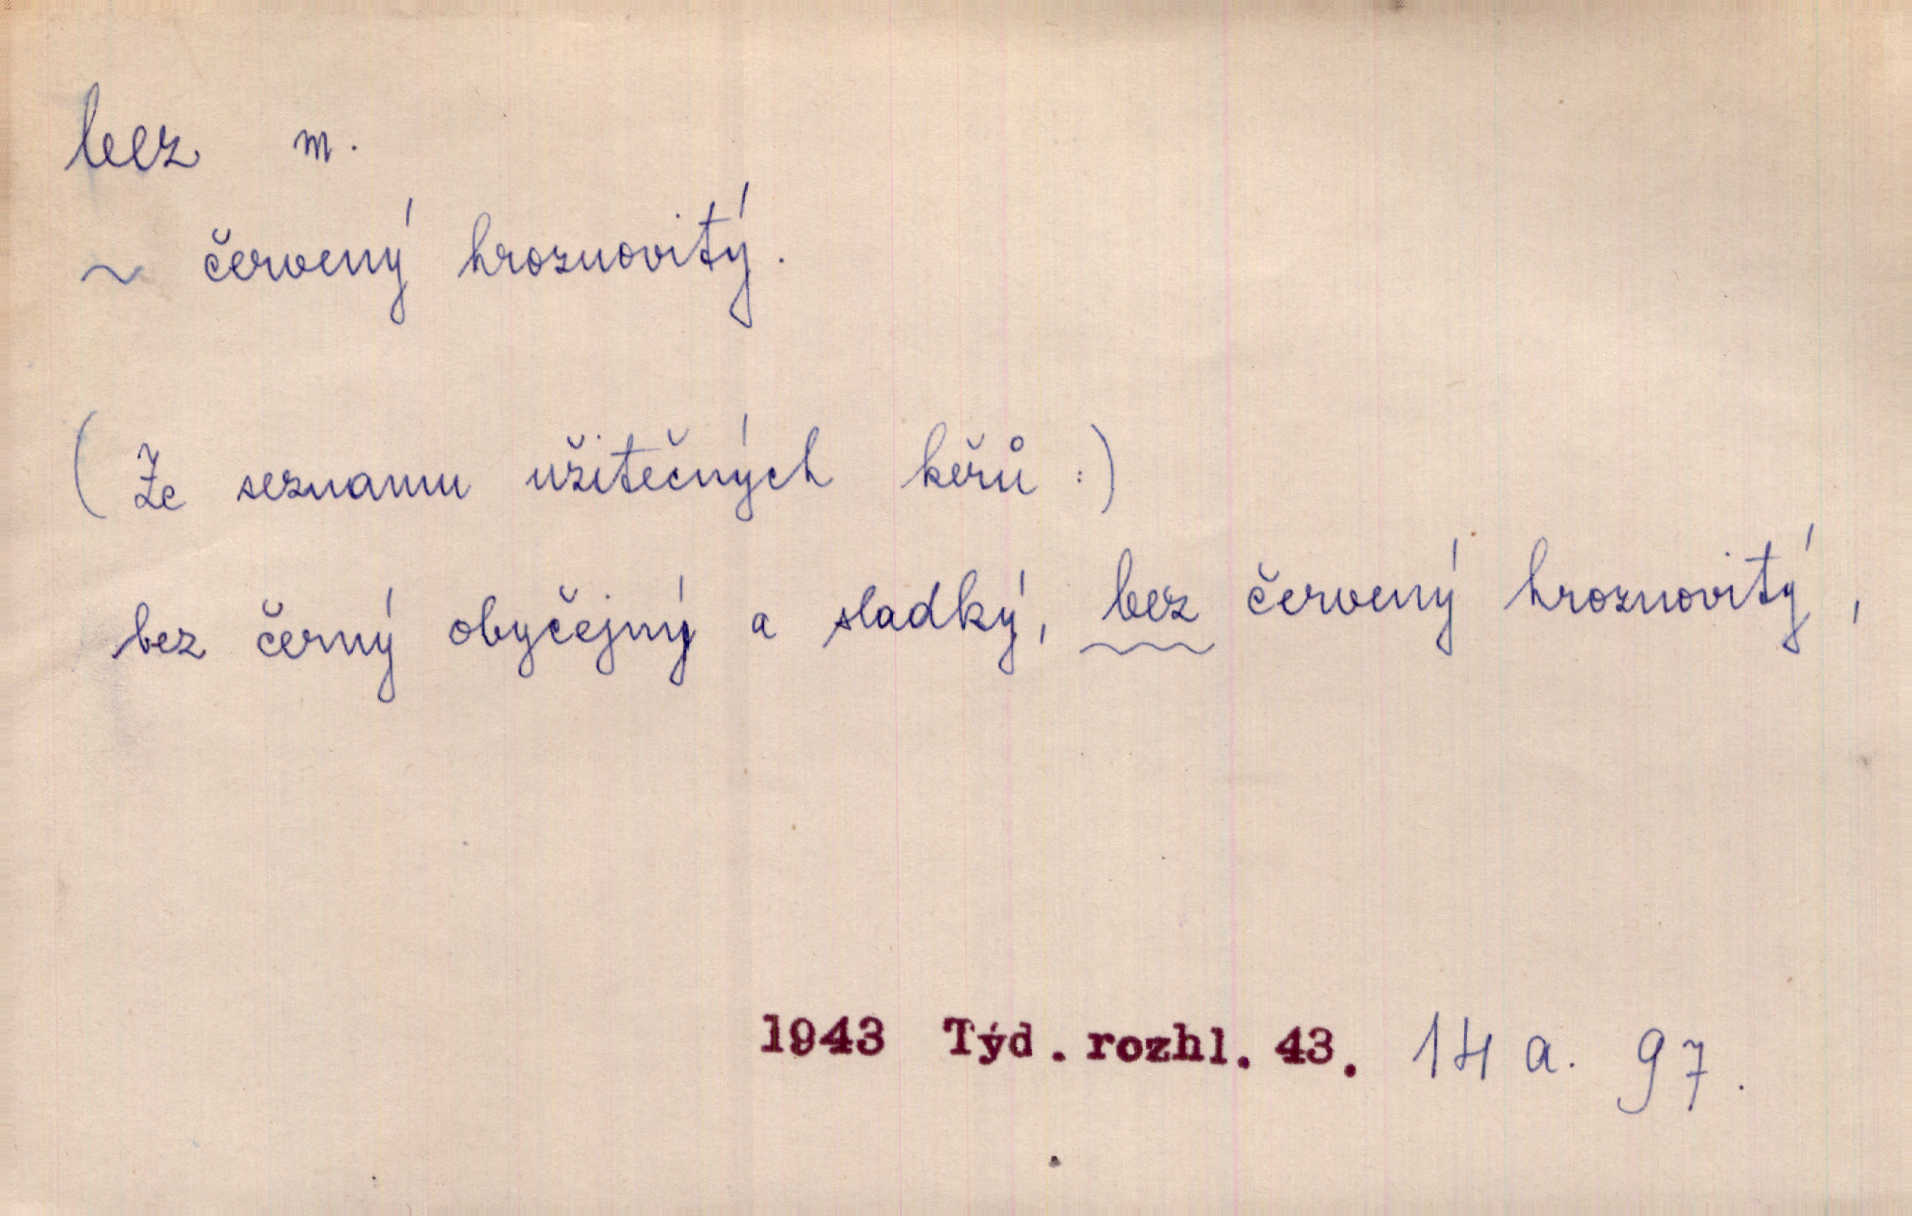 bez m.
~ červený hroznovitý.
(Ze seznamu užitečných keřů:)
bez černý obyčejný a sladký, bez červený hroznovitý,
1943 Týd. rozhl. 43. 14 a. 97.